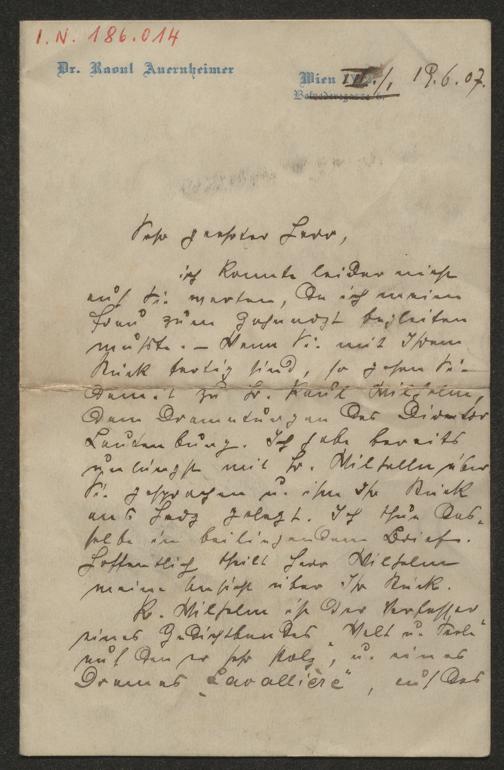 I.N. 186.014
Dr. Raoul Auernheimer
Wien III./1, 19.6.07.
Sehr geehrter Herr,
ich konnte leider nicht
auf Sie warten, da ich meine
Frau zum Zahnarzt begleiten
mußte. – Wenn Sie mit Ihrem
Stück fertig sind, so gehen Sie
damit zu Hr. Paul Wilhelm,
dem Dramaturgen des Direktor
Lautenburg. Ich habe bereits
unlängst mit Hr. Wilhelm über
Sie gesprochen u. ihm Ihr Stück
ans Herz gelegt. Ich thue das-
selbe in beiliegendem Brief.
Hoffentlich theilt Herr Wilhelm
meine Ansicht über Ihr Stück.
Hr. Wilhelm ist der Verfasser
eines Gedichtbandes „Welt u. Seele“
auf den er sehr stolz, u. eines
Dramas „Lavallière“, auf das